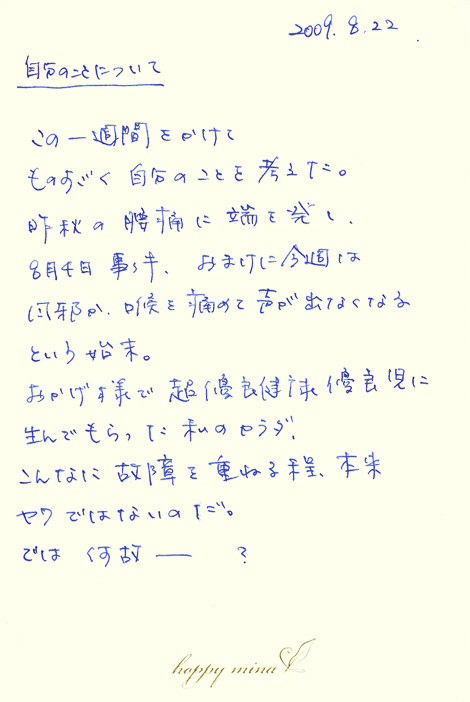 2009.8.22
自分のことについて
この一週間をかけて
ものすごく自分のことを考えた。
昨秋の腰痛に端を発し、
8月4日事件、おまけに今週は
風邪か、喉を痛めて声が出なくなる
という始末。
おかげ様で超優良健康優良児に
生んでもらった私のカラダ、
こんなに故障を重ねる程、本来
ヤワではないのだ。
では何故―― ?
happy mina